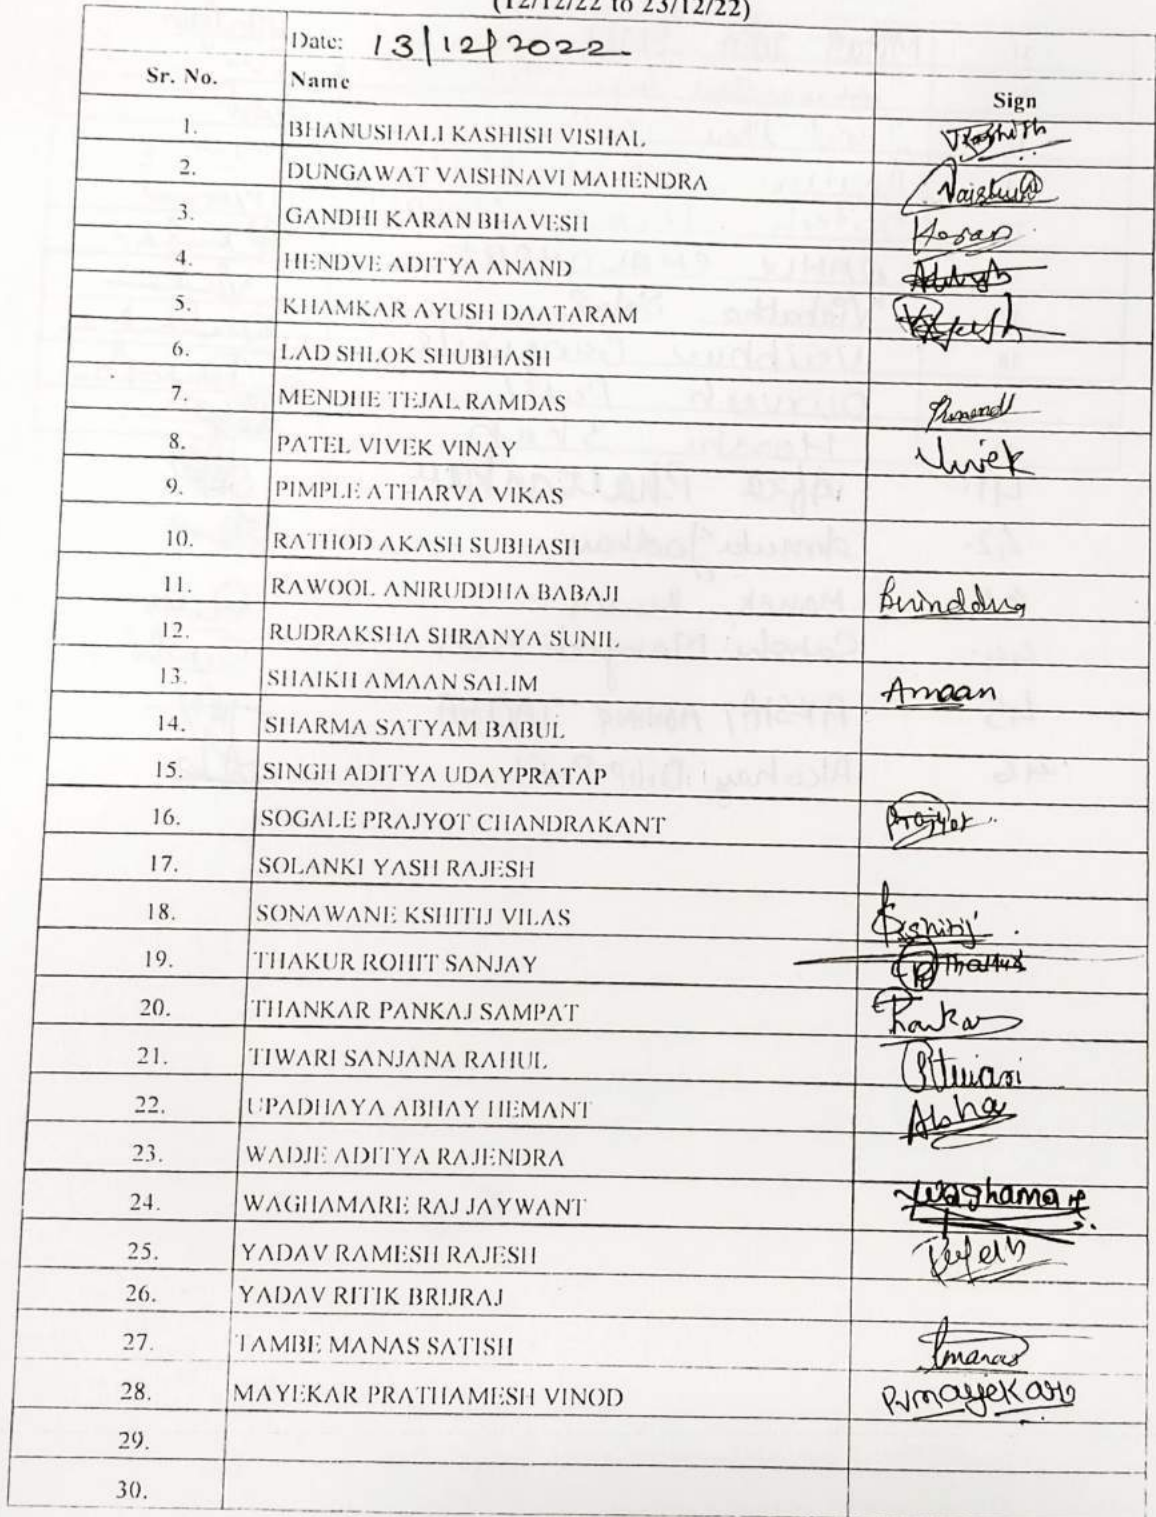 (12/12/22 to 23/12/22)
Date: 13/12/2022
Sr. No. Name Sign
1. BHANUSHALI KASHISH VISHAL
2. DUNGAWAT VAISHNAVI MAHENDRA
3. GANDHI KARAN BHAVESH Karan
4. HENDVE ADITYA ANAND
5. KHAMKAR AYUSH DAATARAM
6. LAD SHLOK SHUBHASH
7. MENDHE TEJAL RAMDAS
8. PATEL VIVEK VINAY Vivek
9. PIMPLE ATHARVA VIKAS
10. RATHOD AKASH SUBHASH
11. RAWOOL ANIRUDDHA BABAJI
12. RUDRAKSHA SHRANYA SUNIL
13. SHAIKH AMAAN SALIM Amaan
14. SHARMA SATYAM BABUL
15. SINGH ADITYA UDAYPRATAP
16. SOGALE PRAJYOT CHANDRAKANT Prajyot
17. SOLANKI YASH RAJESH
18. SONAWANE KSHITIJ VILAS Kshitij
19. THAKUR ROHIT SANJAY
20. THANKAR PANKAJ SAMPAT
21. TIWARI SANJANA RAHUL
22. UPADHAYA ABHAY HEMANT
23. WADJE ADITYA RAJENDRA
24. WAGHAMARE RAJ JAYWANT Waghamare
25. YADAV RAMESH RAJESH
26. YADAV RITIK BRIJRAJ
27. TAMBE MANAS SATISH
28. MAYEKAR PRATHAMESH VINOD P.V.mayekar
29.
30.